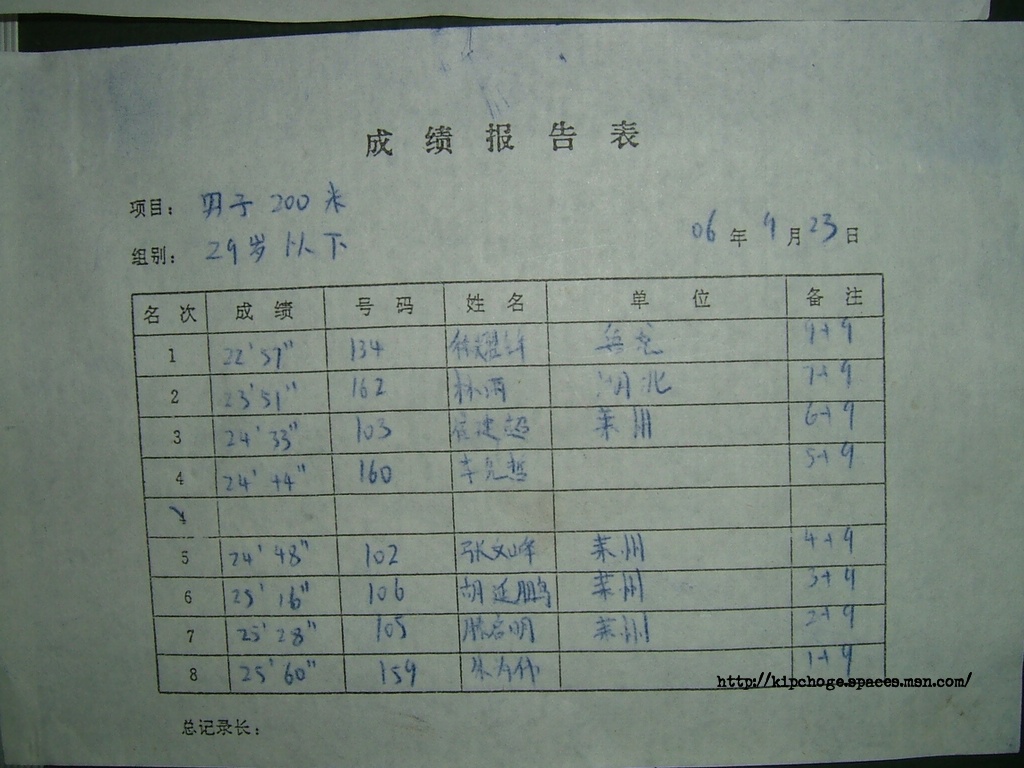 成绩报告表
项目: 男子 200 米
组别: 29岁以下
06年9月23日
名次 成绩 号码 姓名 单位 备注
1 22'57" 134 9+9
2 23'51" 162 林雨 湖北 7+9
3 24'33" 103 崔建超 莱州 6+9
4 24'44" 160 李克哲 5+9
4
5 24'48" 102 张文峰 莱州 4+9
6 25'16" 106 胡延鹏 莱州 3+9
7 25'28" 105 滕启明 莱州 2+9
8 25'60" 159 1+9
http://kipchoge.spaces.msn.com/
总记录长: